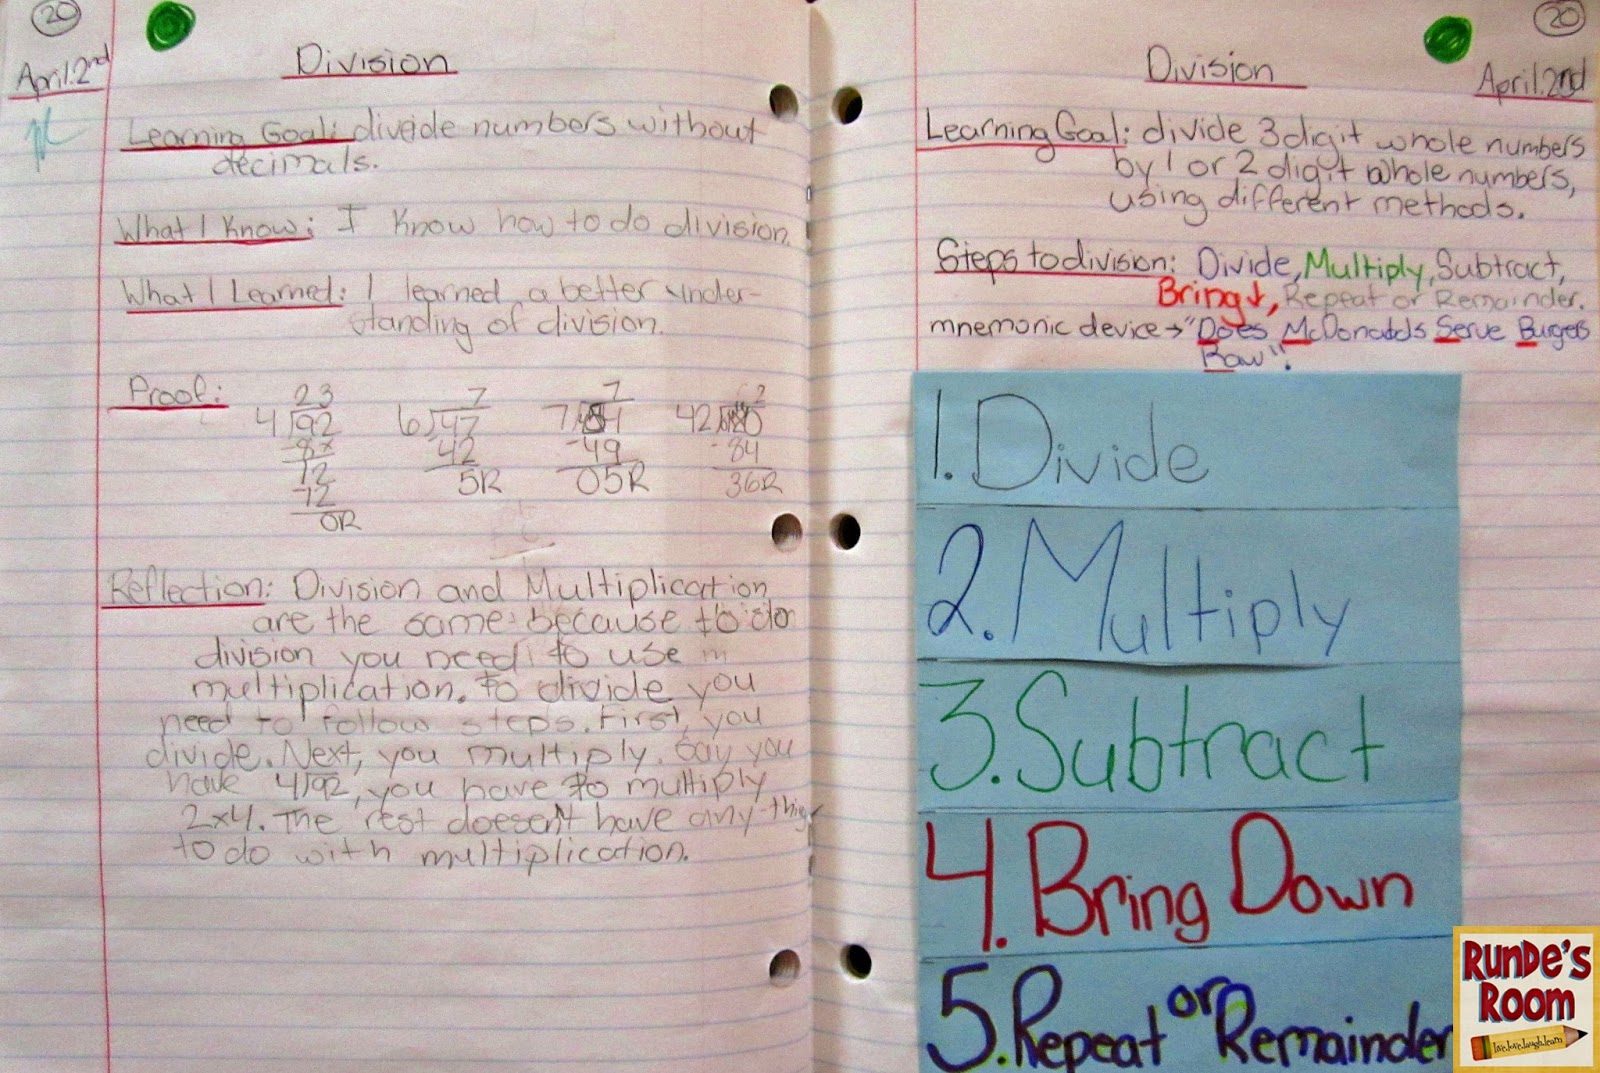 20
April.2nd
Division
Learning Goal: diveide numbers without
decimals.
What I Know: I Know how to do division.
What I Learned: I learned a better under-
standing of division.
Proof:
23
4)92
-8x
12
-12
0R
7
6)47
42
5R
7
-49
05R
2
-84
36R
Reflection: Division and Multiplication
are the same because to do
division you need to use
multiplication. to divide you
need to follow steps. First, you
divide. Next, you multiply. Say you
have 4)92, you have to multiply
2x4. The rest doesen't have any-thing
to do with multiplication.
20
Division
April.2nd
Learning Goal: divide 3 digit whole numbers
by 1 or 2 digit whole numbers,
using different methods.
Steps to division: Divide, Multiply, Subtract,
Bring↓, Repeat or Remainder.
mnemonic device → "Does McDonadds Serve Burgers
Raw".
1. Divide
2. Multiply
3. Subtract
4. Bring Down
5. Repeat or Remainder
RUNDE'S
ROOM
live.love.laugh.learn